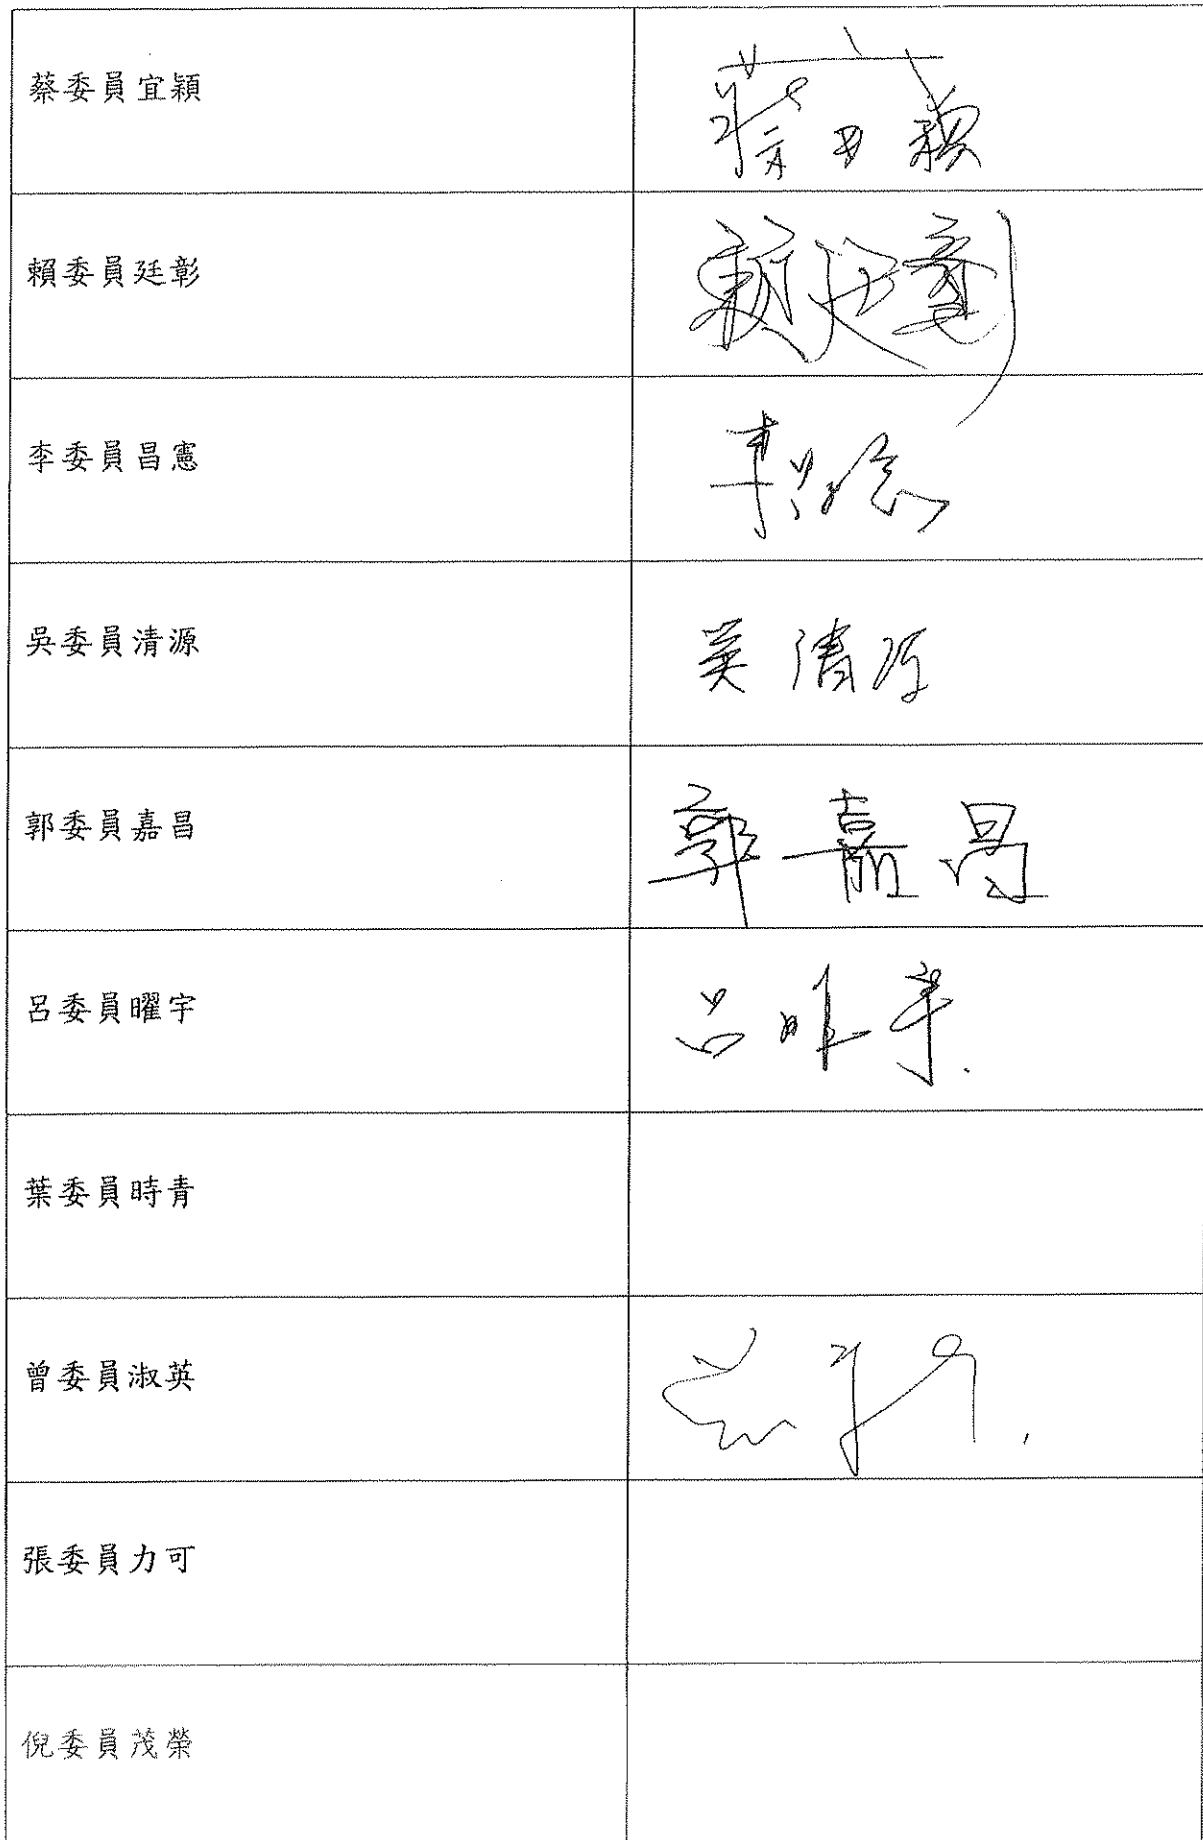 蔡委員宜穎
蔡宜穎
賴委員廷彰
賴廷彰
李委員昌憲
李昌憲
吳委員清源
吳清源
郭委員嘉昌
郭嘉昌
呂委員曜宇
葉委員時青
曾委員淑英
張委員力可
倪委員茂榮